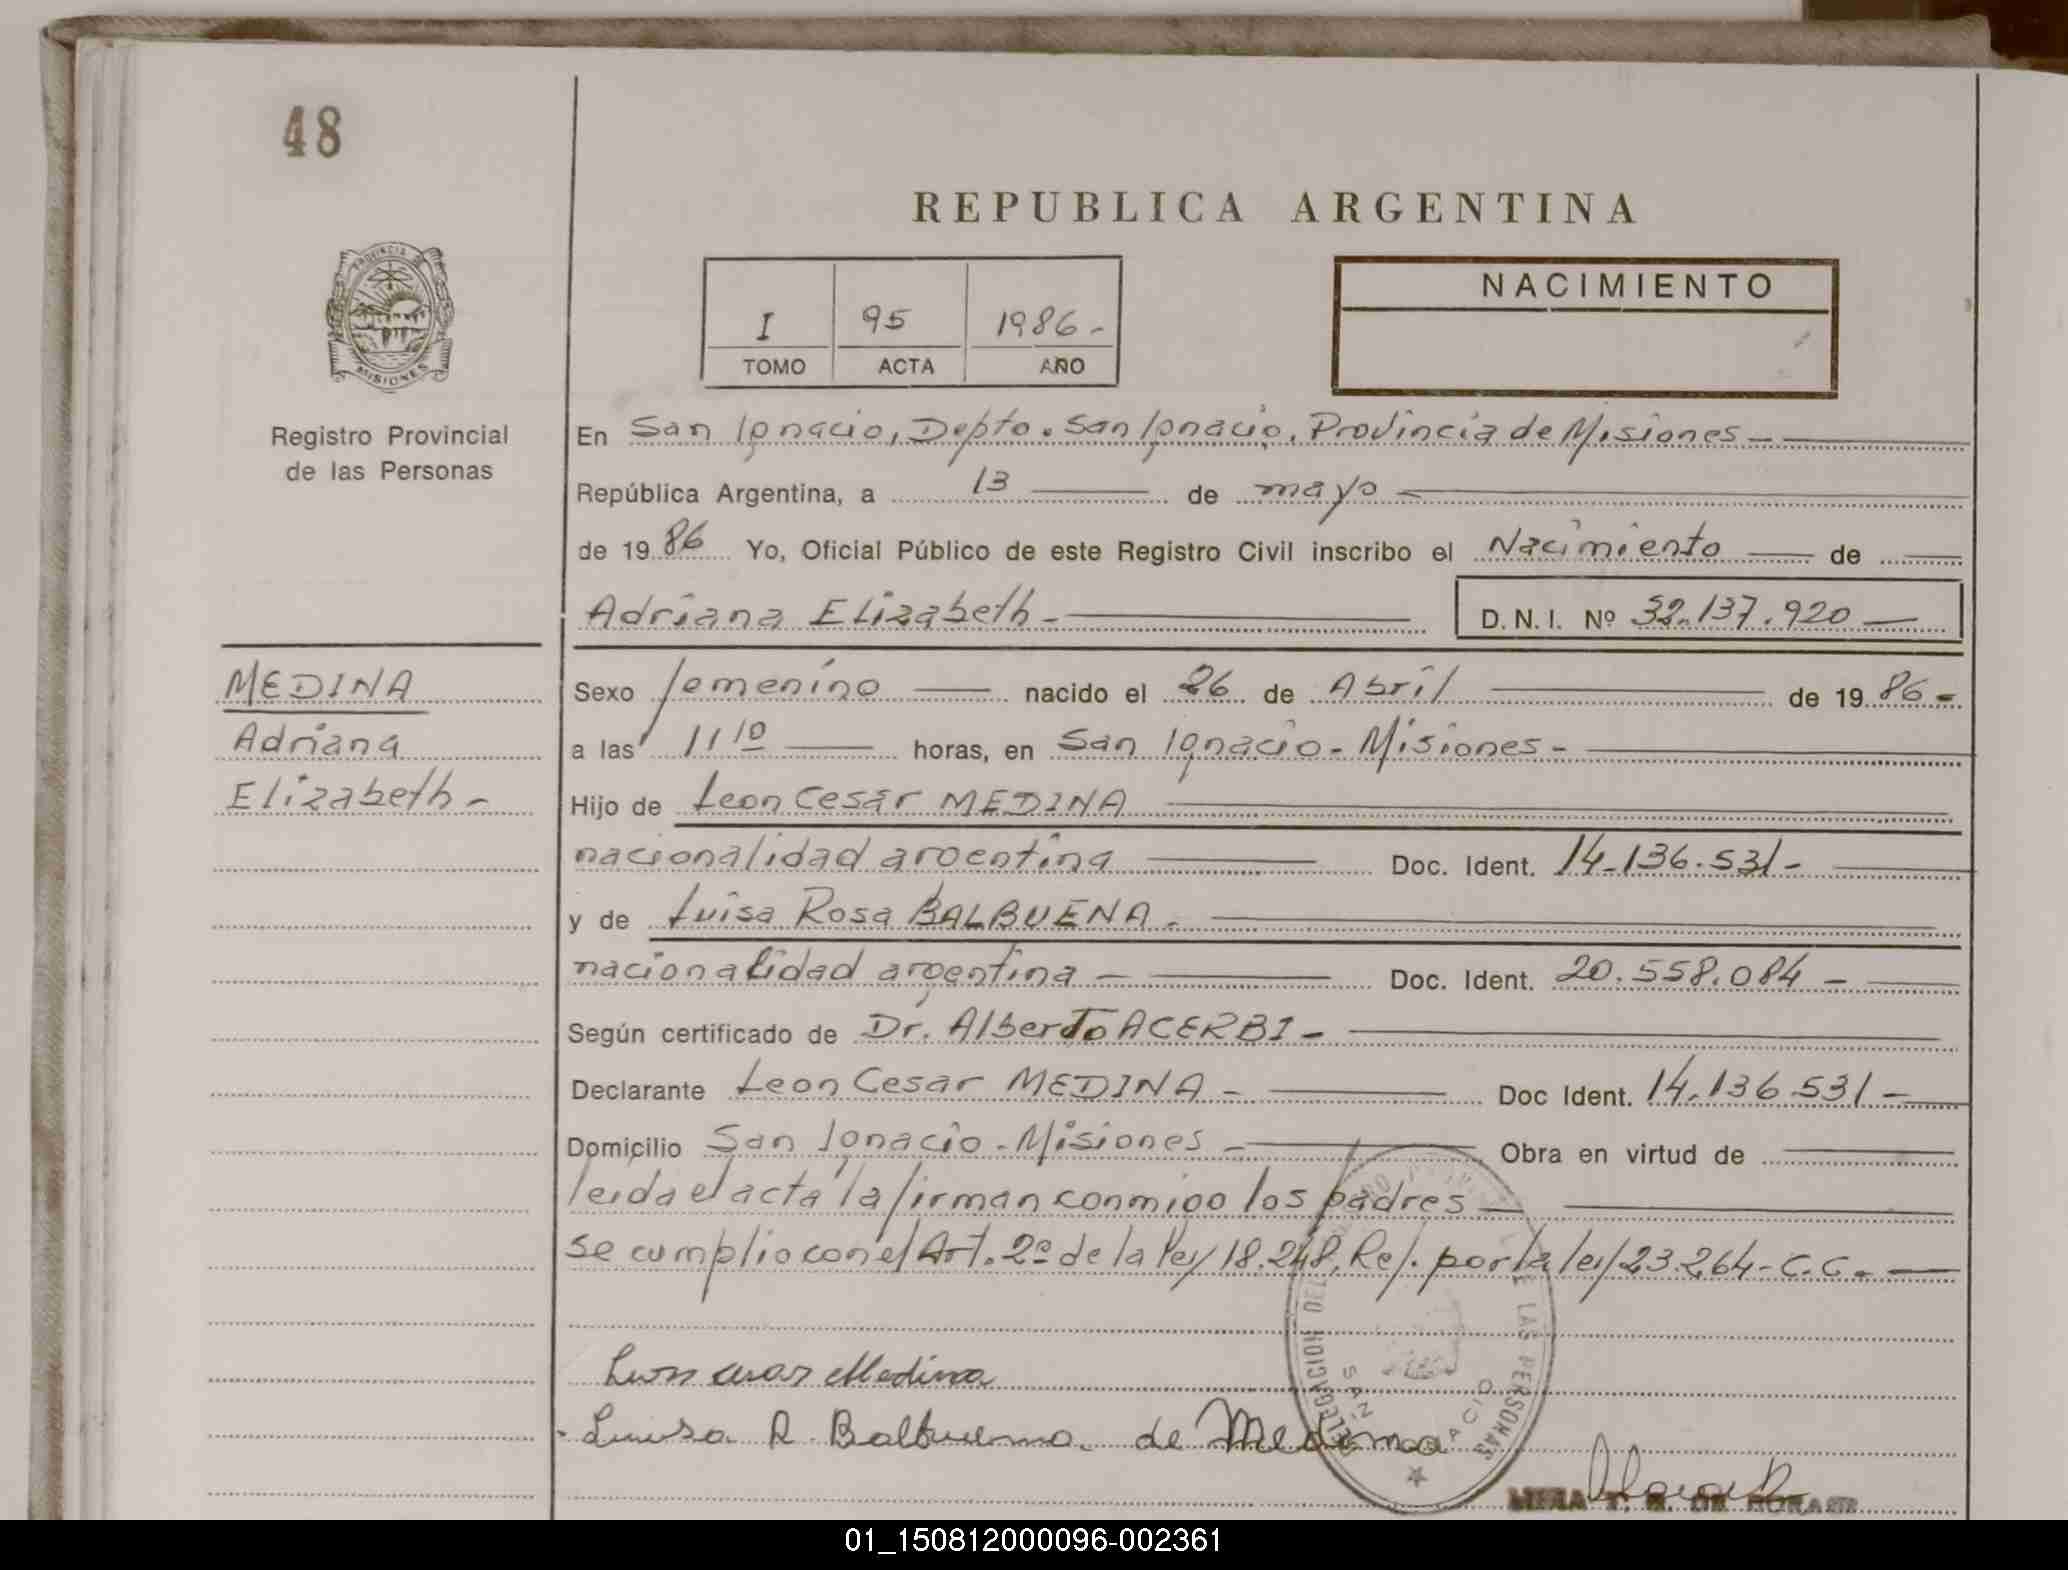 48
REPUBLICA ARGENTINA
NACIMIENTO
I 95 1986-
TOMO ACTA AÑO
PROVINCIA DE
MISIONES
Registro Provincial
de las Personas
En San Ignacio, Depto. San Ignacio, Provincia de Misiones -
República Argentina, a 13 de mayo -
de 19 86 Yo, Oficial Público de este Registro Civil inscribo el Nacimiento de
Adriana Elizabeth - D. N. I. Nº 32.137.920 -
MEDINA
Adriana
Elizabeth -
Sexo femenino nacido el 26 de Abril de 19 86 -
a las 11 10 horas, en San Ignacio - Misiones -
Hijo de Leon Cesar MEDINA
nacionalidad argentina Doc. Ident. 14.136.531 -
y de Luisa Rosa BALBUENA.
nacionalidad argentina - Doc. Ident. 20.558.084 -
Según certificado de Dr. Alberto ACERBI -
Declarante Leon Cesar MEDINA - Doc Ident. 14.136.531 -
Domicilio San Ignacio - Misiones - Obra en virtud de
leida el acta la firman conmigo los padres
se cumplio con el Art. 2º de la ley 18.248, Ref. por la ley 23.264 - C.C. -
Leon cesar Medina
Luisa R. Balbuena de Medina
DELEGACION DEL LAS PERSONAS
SAN IGNACIO
01_150812000096-002361